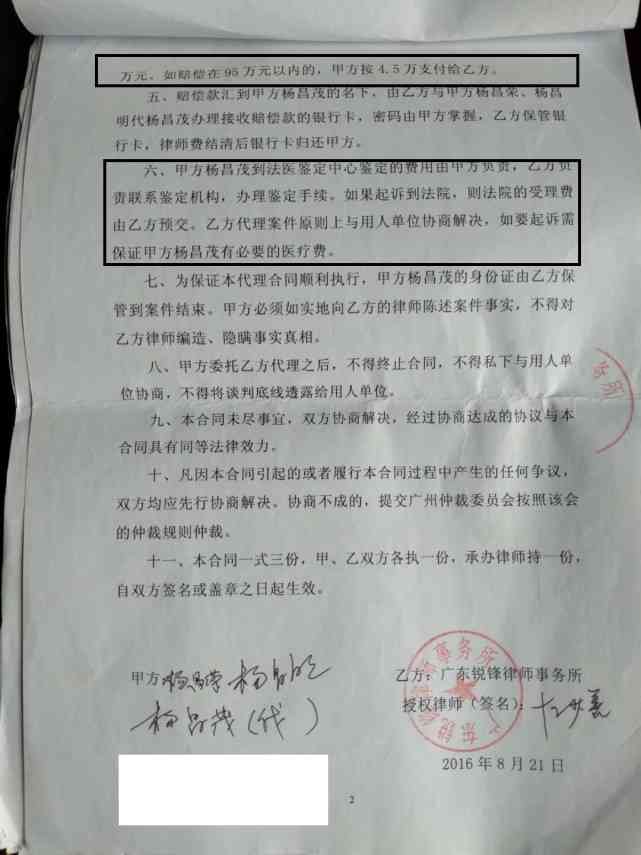 万元。如赔偿在95万元以内的，甲方按4.5万支付给乙方。
五、赔偿款汇到甲方杨昌茂的名下，由乙方与甲方杨昌荣、杨昌
明代杨昌茂办理接收赔偿款的银行卡，密码由甲方掌握，乙方保管银
行卡，律师费结清后银行卡归还甲方。
六、甲方杨昌茂到法医鉴定中心鉴定的费用由甲方负责，乙方负
责联系鉴定机构，办理鉴定手续。如果起诉到法院，则法院的受理费
由乙方预交。乙方代理案件原则上与用人单位协商解决，如要起诉需
保证甲方杨昌茂有必要的医疗费。
七、为保证本代理合同顺利执行，甲方杨昌茂的身份证由乙方保
管到案件结束。甲方必须如实地向乙方的律师陈述案件事实，不得对
乙方律师编造、隐瞒事实真相。
八、甲方委托乙方代理之后，不得终止合同，不得私下与用人单
位协商，不得将谈判底线透露给用人单位。
九、本合同未尽事宜，双方协商解决，经过协商达成的协议与本
合同具有同等法律效力。
十、凡因本合同引起的或者履行本合同过程中产生的任何争议，
双方均应先行协商解决。协商不成的，提交广州仲裁委员会按照该会
的仲裁规则仲裁。
十一、本合同一式三份，甲、乙双方各执一份，承办律师持一份，
自双方签名或盖章之日起生效。
甲方 杨昌荣 杨昌明
杨昌茂（代）
乙方：广东锐锋律师事务所
授权律师（签名）：
2016年8月21日
2